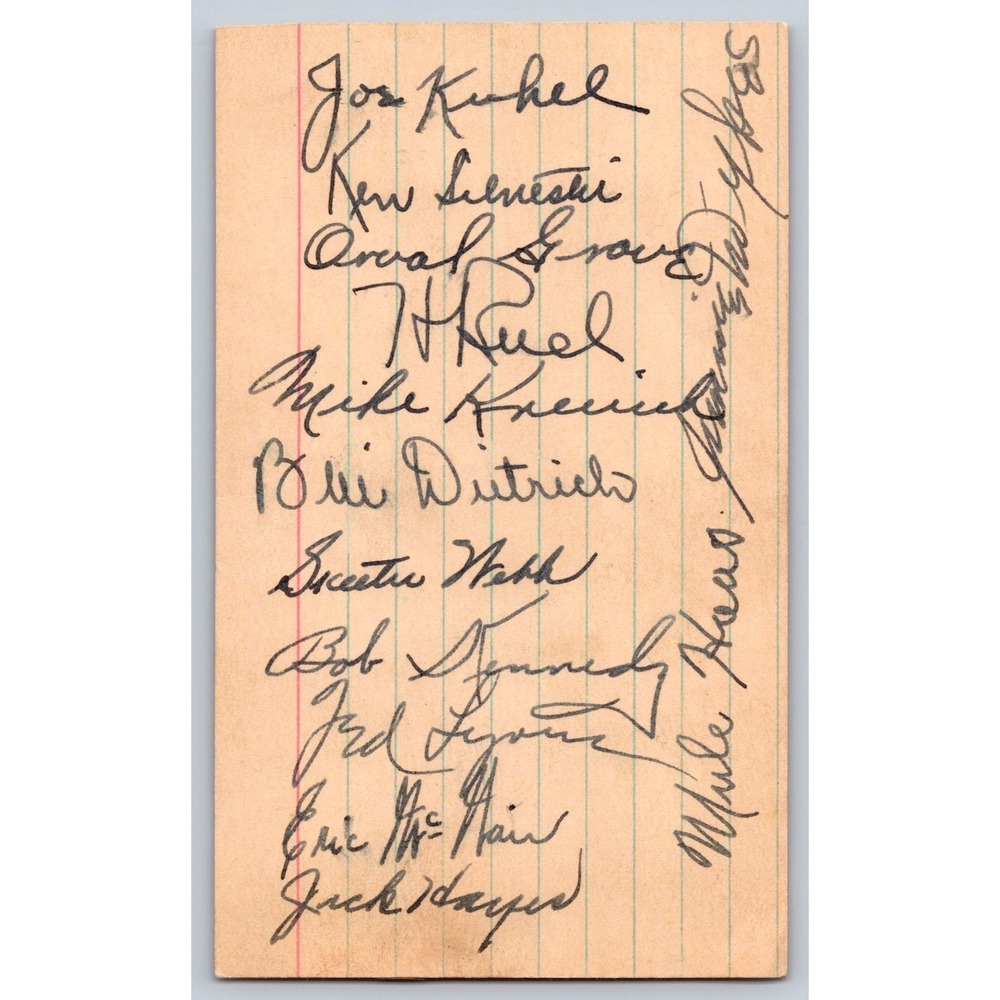 Joe Kuhel
Ken Silvestri
Orval Grove
H Ruel
Mike Kreevich
Bill Dietrich
Skeeter Webb
Bob Kennedy
Ted Lyons
Eric McNair
Jack Hayes
Mule Haas
Jimmie Dykes